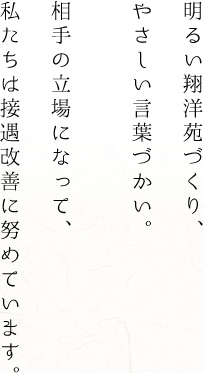 明るい翔洋苑づくり、
やさしい言葉づかい。
相手の立場になって、
私たちは接遇改善に努めています。